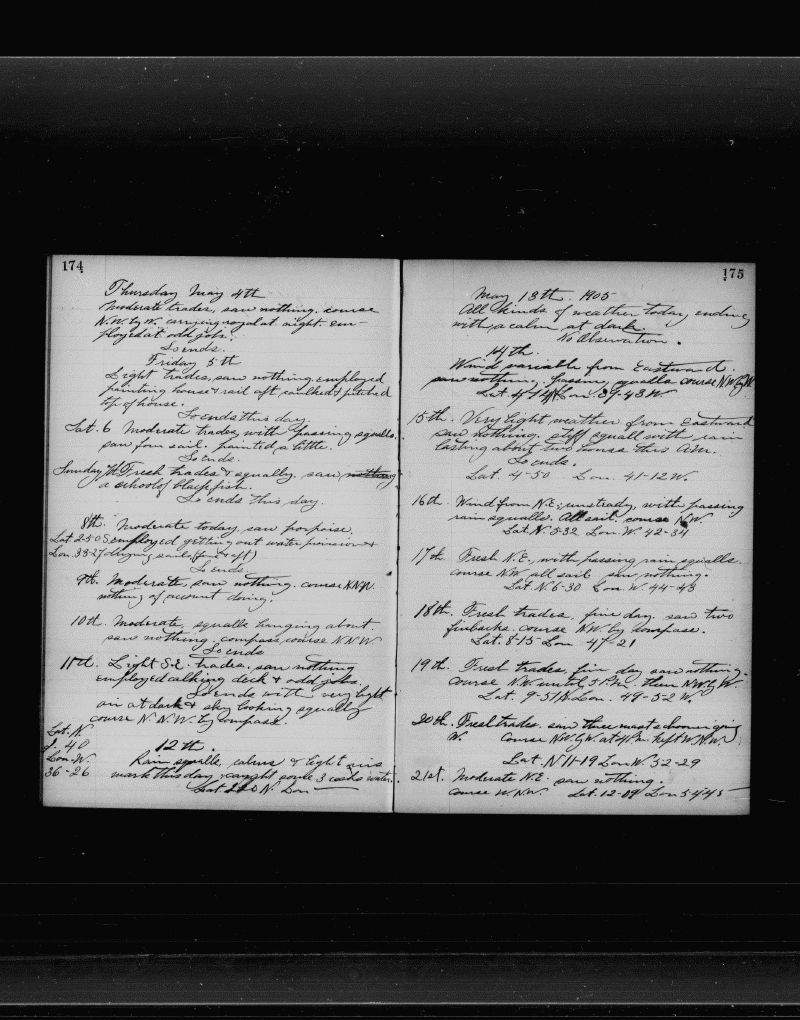 174
Thursday May 4th
Moderate trades, saw nothing. course
N.W. by W. carrying royal at night. em-
ployed at odd jobs.
So ends.
Friday 5th
Light trades, saw nothing. employed
painting house & rail aft, caulked & pitched
top of house.
So ends this day.
Sat. 6 Moderate trades, with passing squalls,
saw four sail. painted a little.
So ends.
Sunday 7th Fresh trades & squally. saw nothing
a school of blackfish.
So ends this day.
8th. Moderate today, saw porpoise.
Lat 2-50 S employed getting out water provision &
Lon. 33-27 sails (fore & aft)
So ends.
9th. Moderate, saw nothing. course N.N.W.
nothing of account doing.
10th. Moderate, squalls hanging about
saw nothing. compass course N.N.W
So ends
11th. Light S.E. trades. saw nothing
employed calking deck & odd jobs.
So ends with very light
air at dark & sky looking squally
course N.N.W. by compass.
Lat. N.
40
Lon. W.
36-26
12th.
Rain squalls, calms & light airs
mark this day, caught some 3 casks water.
Lat N. Lon
175
May 13th. 1905
All kinds of weather today, ending
with a calm, at dark.
No Observation.
14th.
Wind variable from Eastward.
saw nothing, passing squalls course N.W. by W
Lat. 4-14 N Lon. 39-43 W
15th. Very light weather from Eastward
saw nothing. stiff squall with rain
lasting about two hours this A.M.
So ends.
Lat. 4-50 Lon. 41-12 W.
16th. Wind from N.E. unsteady, with passing
rain squalls. All sail. course N.W.
Lat. N. 5-32 Lon. W. 42-34
17th Fresh N.E., with passing rain squalls.
course N.W. all sail saw nothing.
Lat. N. 6-30 Lon. W. 44-43
18th. Fresh trades, fine day. saw two
finbacks. course N.W. by compass.
Lat. 8-15 Lon 47-21
19th. Fresh trades, fine day saw nothing.
course N.W. until 5 P.M. then N.W. by W.
Lat. 9-51 N. Lon. 49-52 W.
20th. Fresh trades. saw three mast schooner going
W. course N.W. by W. at 4 P.M. kept W.N.W.
Lat. N 11-19 Lon W 52-29
21st. Moderate N.E. saw nothing.
course W.N.W. Lat. 12-09 Lon 54-45